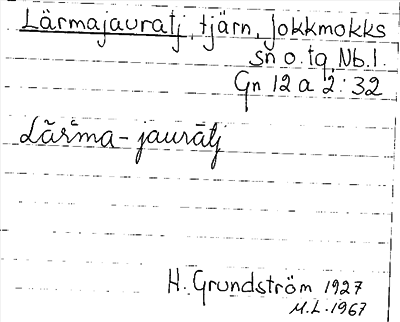 Lärmajauratj, tjärn, Jokkmokks
sn o. tg Nb. l.
Gn 12 a 2:32
Lārma-jaurātj
H. Grundström 1927
M.L. 1967